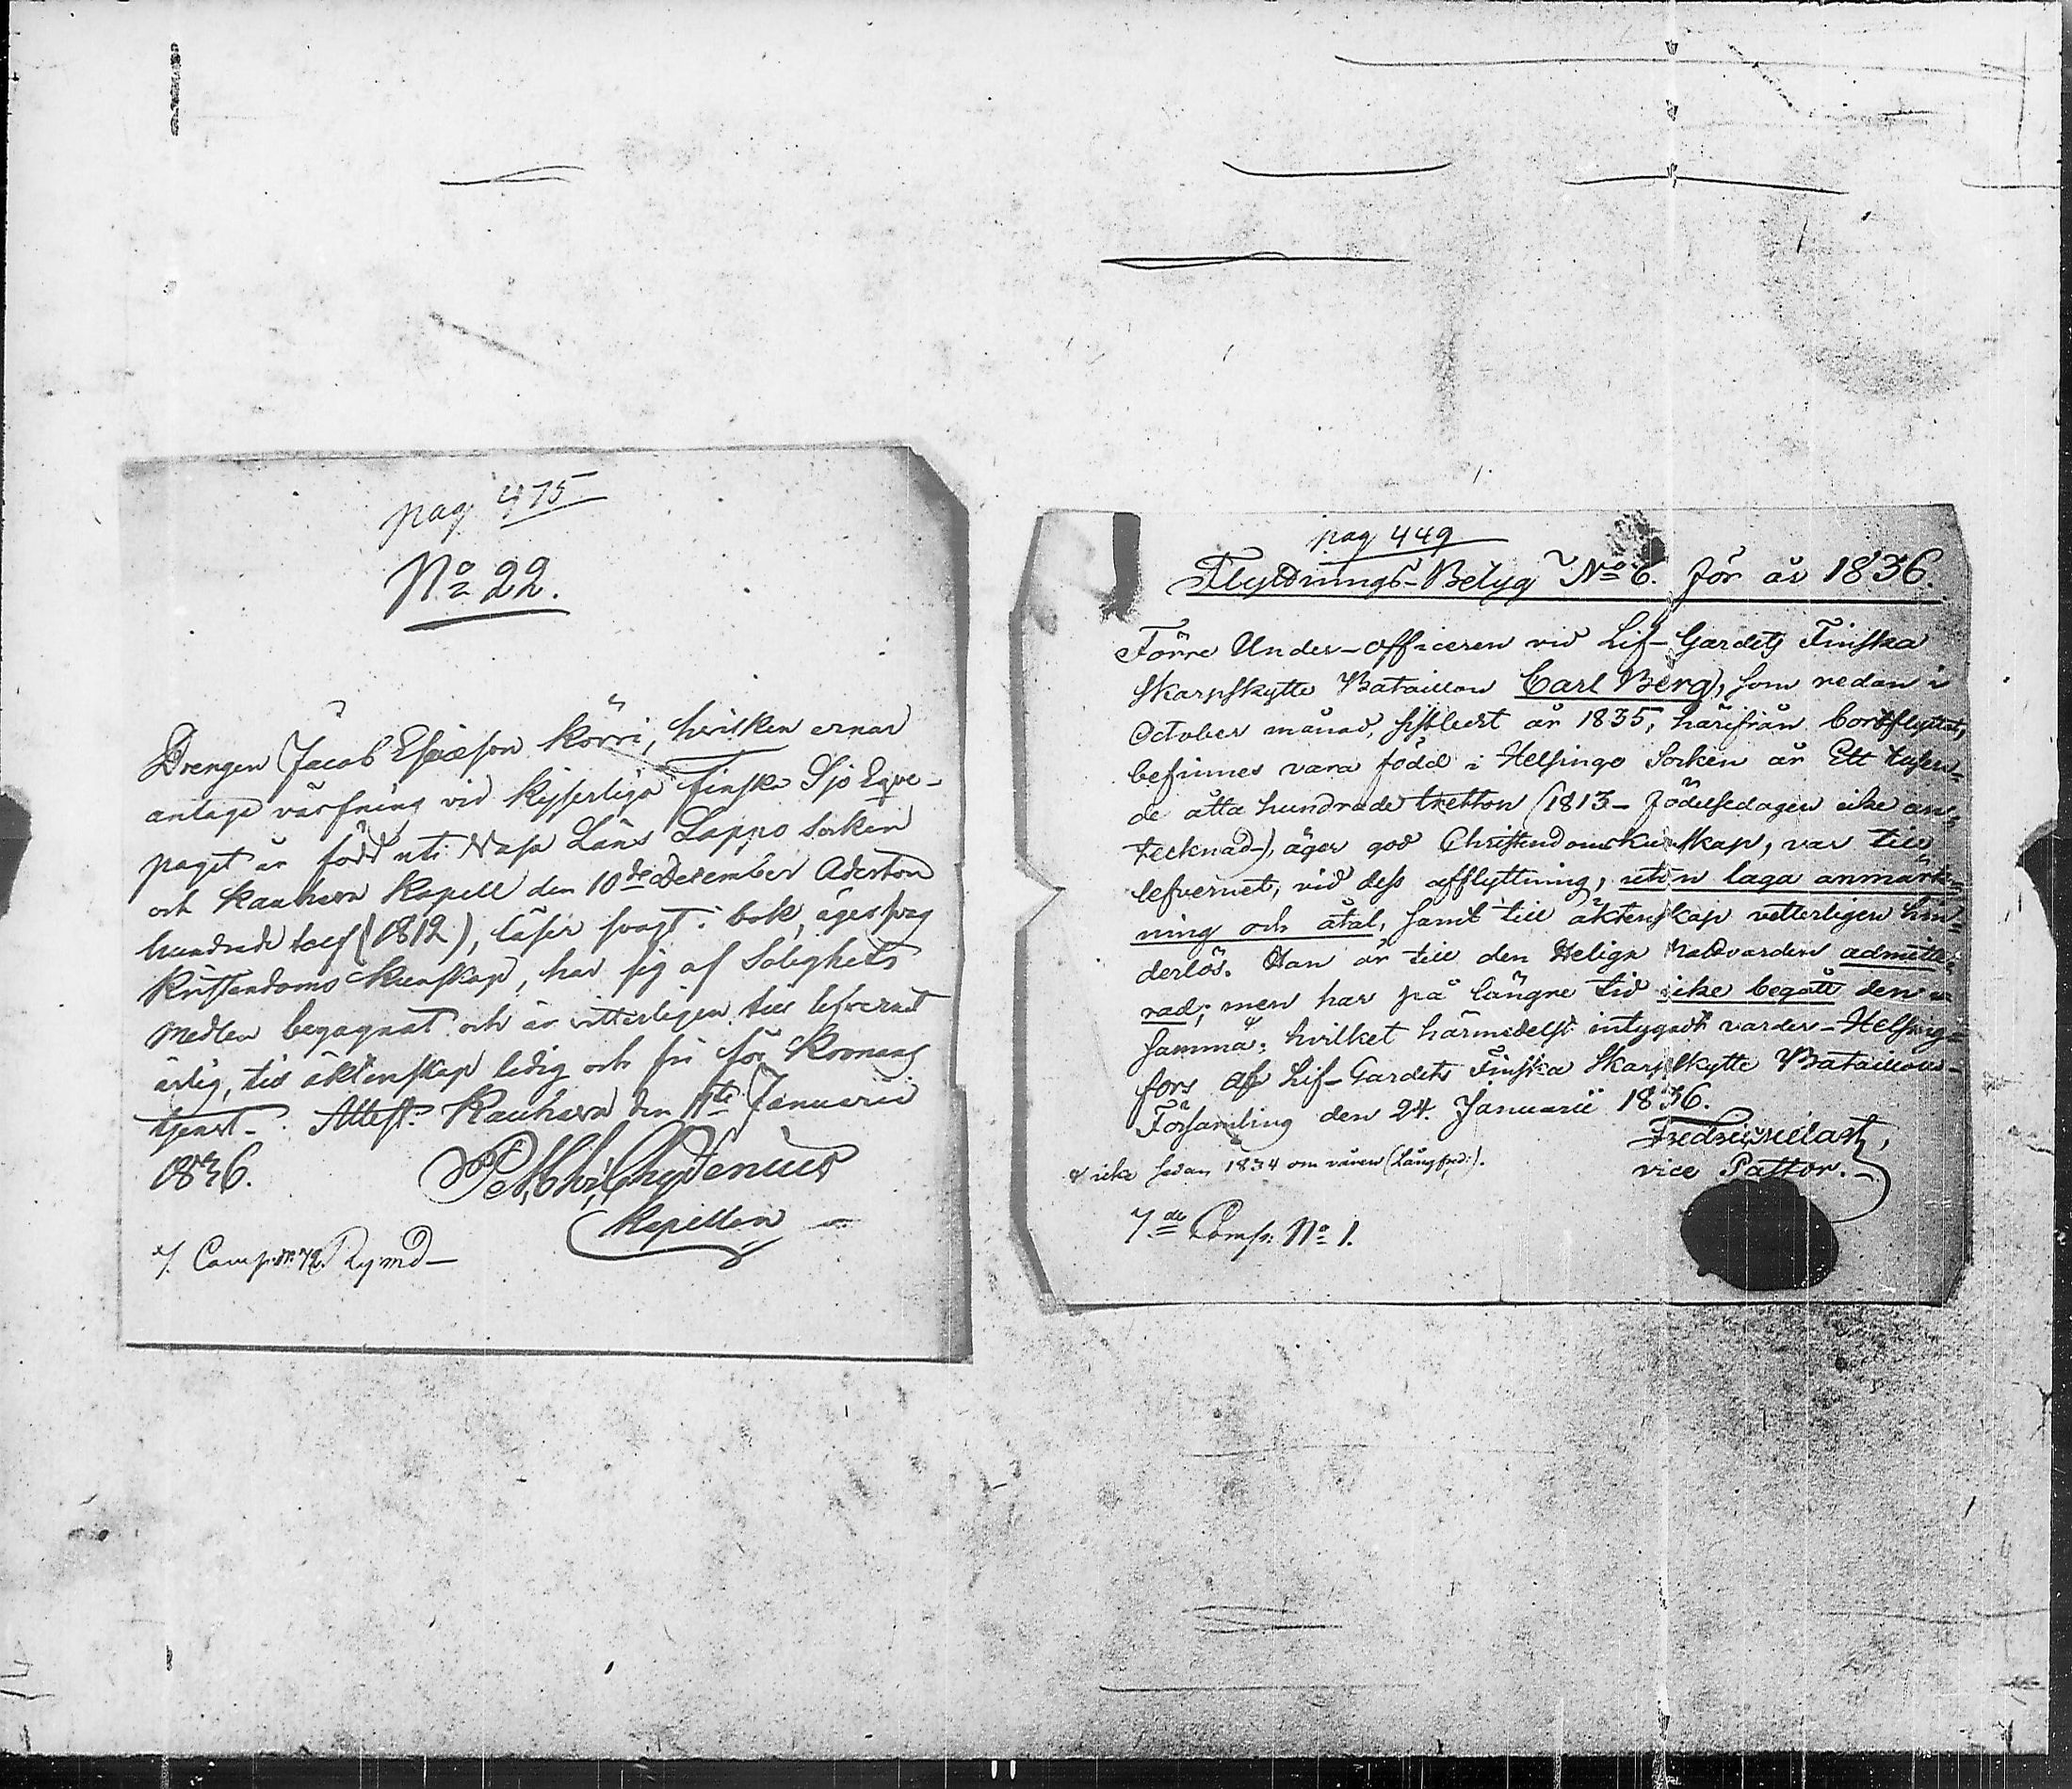 pag 475
No 22.
Drengen Jacob Esaiæson Körri, hvilken ernar
antaga värfning vid Kejserliga Finska Sjö Eqve-
paget är född uti Vasa Läns Lappo Socken
och Kauhava Kapell den 10de December Aderton
hundrade tolf (1812), läser svagt i bok, äger svag
Kristendoms Kunskap, har sig af Salighets
Medlen begagnat och är vitterligen till lefvernet
ärlig, till äktenskap ledig och fri för Kronans
tjenst. Attest. Kauhava den 11te Januarii
1836.
Pet. Chr. Chydenius
Kapellan
7. Comp. No 72. Rymd
pag 449
Flyttnings-Betyg No 6. för år 1836.
Förre Under-officeren vid Lif-Gardets Finska
Skarpskytte Bataillon Carl Berg, som redan i
October månad, sistledt år 1835, härifrån bortflyttat,
befinnes vara född i Helsinge Socken år Ett tusen-
de åtta hundrade tretton (1813 – födelsedagen icke an-
tecknad–), äger god Christendomskunskap, var till
lefvernet, vid dess afflyttning, utan laga anmärk-
ning och åtal, samt till äktenskap vetterligen hin-
derlös. Han är till den Heliga Nattvarden admitte-
rad; men har på längre tid icke begått den-
samma; hvilket härmedelst intygadt varder – Helsing-
fors af Lif-Gardets Finska Skarpskytte Bataillons-
Församling den 24. Januarii 1836.
Fredric
vice Pastor.
icke sedan 1834 om våren (Långfred:).
7.de Comp: No 1.